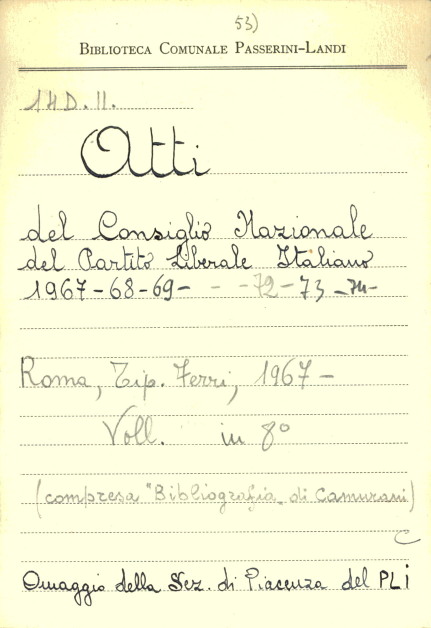 53)
BIBLIOTECA COMUNALE PASSERINI-LANDI
14 D. II.
Atti
del Consiglio Nazionale
del Partito Liberale Italiano
1967-68-69- - -72-73-74-
Roma, Tip. Ferri, 1967-
Voll. in 8°
(compresa "Bibliografia" di Camurani)
Omaggio della Sez. di Piacenza del PLI